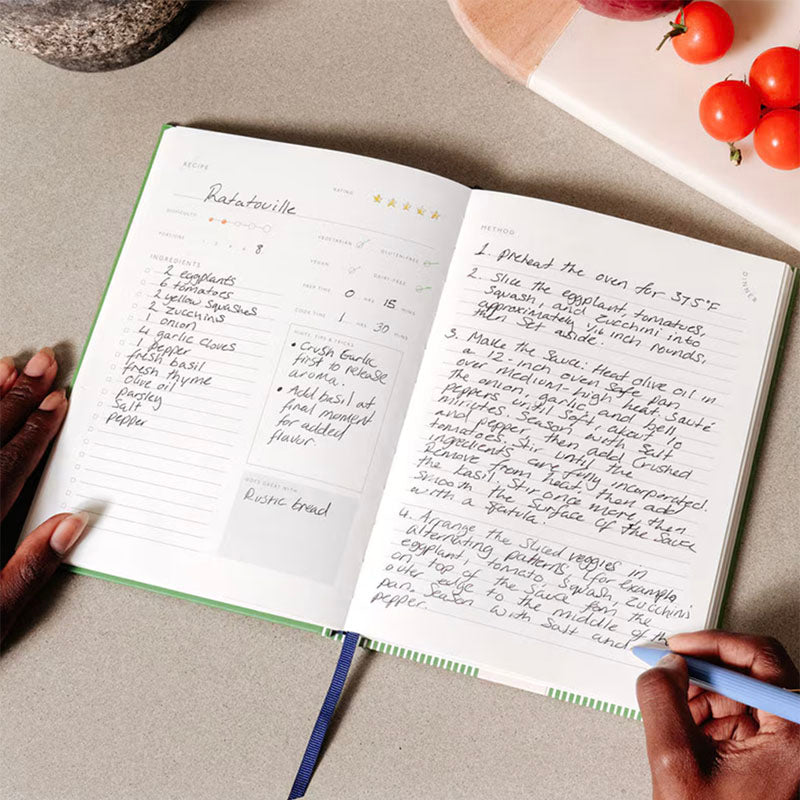 RECIPE
RATING
Ratatouille
DIFFICULTY
PORTIONS
8
VEGETARIAN
GLUTEN-FREE
VEGAN
DAIRY-FREE
PREP TIME 0 HRS 15 MINS
COOK TIME 1 HRS 30 MINS
INGREDIENTS
2 eggplants
6 tomatoes
2 yellow squashes
2 zucchins
1 onion
4 garlic cloves
1 pepper
fresh basil
fresh thyme
olive oil
parsley
salt
pepper
HINTS, TIPS & TRICKS
• Crush Garlic
first to release
aroma.
• Add basil at
final moment
for added
flavur.
GOES GREAT WITH
Rustic bread
METHOD
DINNER
1. Preheat the oven for 375°F
2. Slice the eggplant, tomatoes,
squash, and zucchini into
approximately 1/16 inch rounds,
then set aside.
3. Make the sauce: Heat olive oil in
a 12-inch oven safe pan
over medium-high heat. Sauté
the onion, garlic, and bello
peppers until soft, about
minutes. Season with salt
and pepper, then add crushed
tomatoes. Stir until the
ingredients are fully incorporated.
Remove from heat, then add
the basil. Stir once more, then
smooth the surface of the sauce
with a spatula.
4. Arrange the sliced veggies in
alternating patterns, (for example,
eggplant, tomato, squash, zucchini)
on top of the sauce from the
outer edge to the middle of th
pan. Season with salt and
pepper.